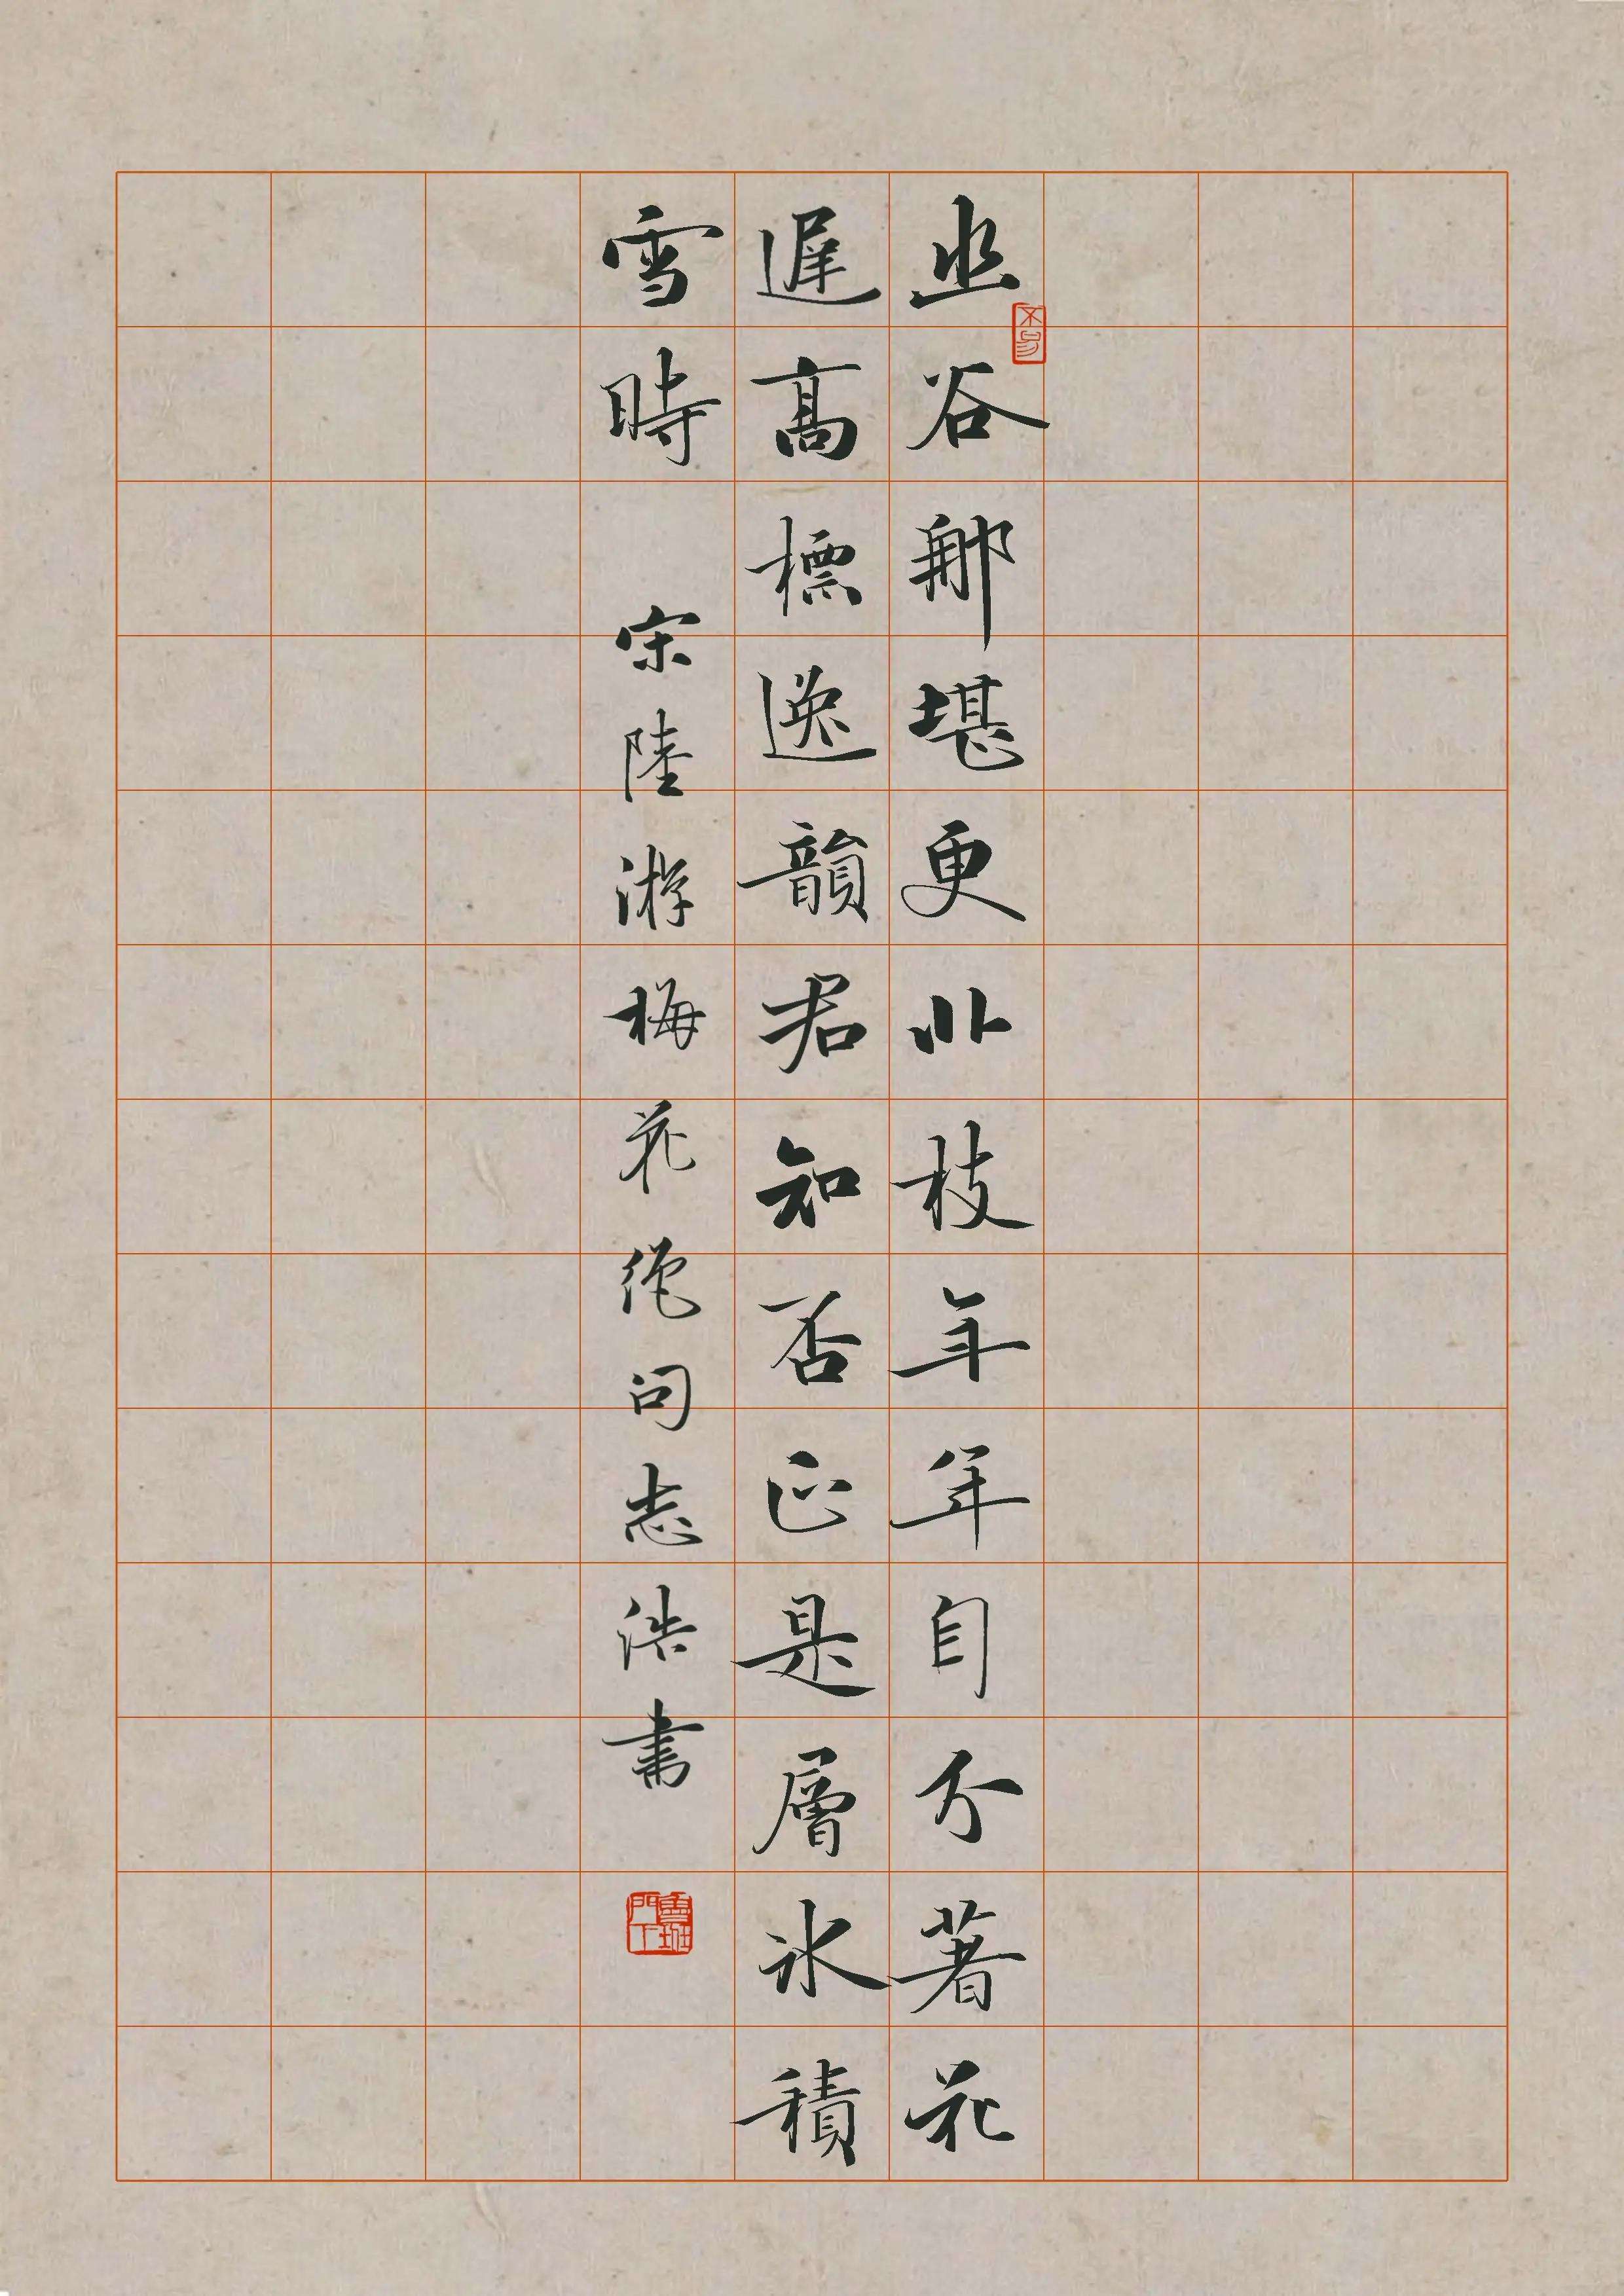 幽谷那堪更北枝年年自分著花
遲高標逸韻君知否正是層冰積
雪時
宋陸游梅花絕句志浩書
不易
魯班門下